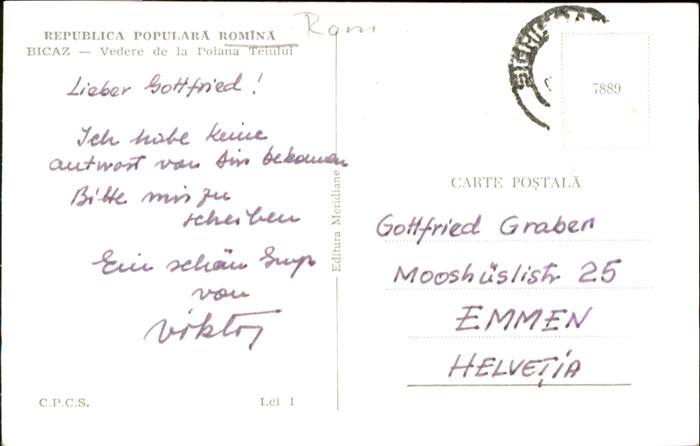 REPUBLICA POPULARĂ ROMÎNĂ
BICAZ — Vedere de la Poiana Teiului
Rom
Lieber Gottfried!
Ich habe keine
antwort von dir bekomen
Bitte mir zu
scheiben
Ein schön
von
Viktor
C.P.C.S.
Lei 1
Editura Meridiane
7889
CARTE POȘTALĂ
Gottfried Graben
Mooshüslistr 25
EMMEN
HELVEȚIA